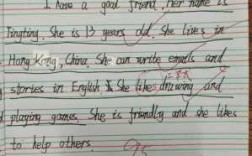 I have a good friend, her name is
Tingting. She is 13 years old. She lives in
Hong Kong, China, She can write emails and
stories in English. She likes drawing and
playing games. She is friendly and she likes
to help others.